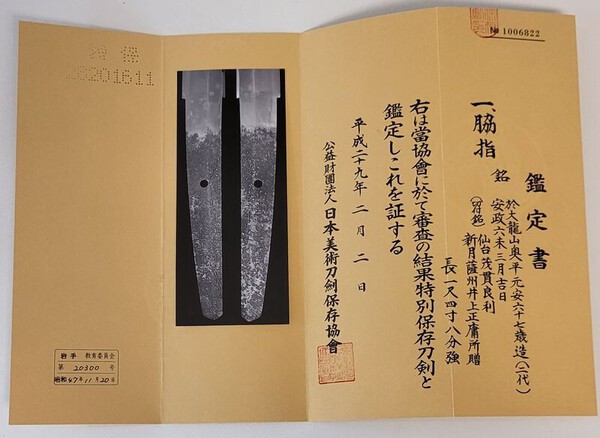 № 1006822
鑑定書
一、脇指
銘
於大龍山奥平元安六十七歳造(二代)
安政六未三月吉日
(切付銘)仙台茂貫良利
新月薩州井上正庸所贈
長一尺四寸八分強
右は當協會に於て審査の結果特別保存刀剣と
鑑定しこれを証する
平成二十九年二月二日
公益財團法人日本美術刀剣保存協會
岩手 教育委員会
第 20300 号
昭和47年11月20日